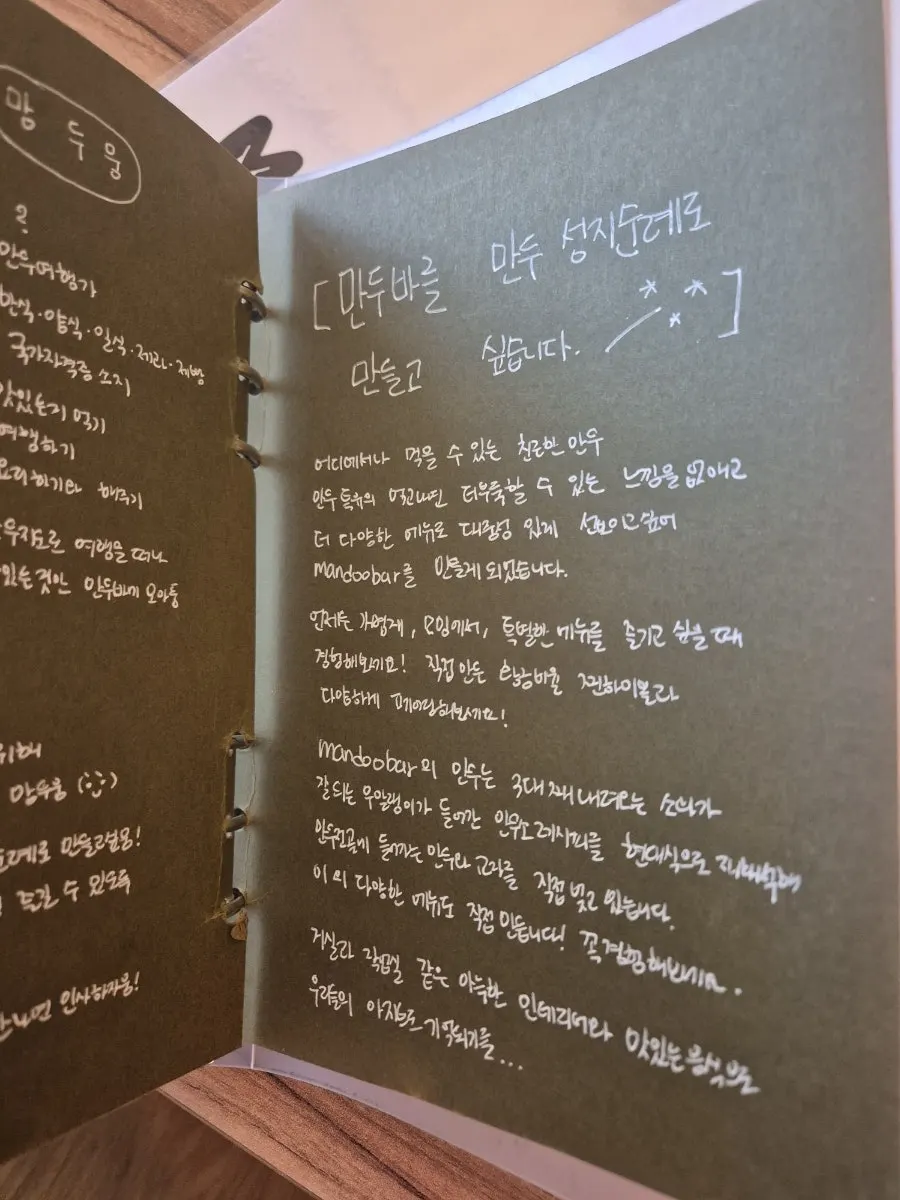 망두웅
?
만두여행가
한식·양식·일식·제과·제빵
국가자격증 소지
맛있는거 먹기
여행하기
요리하기와 해주기
여행을 떠나
있는것만 만두바에 모아둥
위해
망두웅
만들려눙!
즐길 수 있도록
만나면 인사하자웅!
[만두바를 만두 성지순례로
만들고 싶습니다. ]
어디에서나 먹을 수 있는 친근한 만두
만두 특유의 먹고나면 더부룩할 수 있는 느낌을 없애고
더 다양한 메뉴로 대중성 있게 선보이고싶어
mandoobar를 만들게 되었습니다.
언제든 가볍게, 모임에서, 특별한 메뉴를 즐기고 싶을 때
경험해보세요! 직접 만든 하이볼과
다양하게 페어링해보세요!
mandoobar의 만두는 3대 째 내려오는 소화가
잘되는 우렁이가 들어간 만두소 레시피를 현대식으로 재해석해
만두전골에 들어가는 만두와 교자를 직접 빚고 있습니다.
이 외 다양한 메뉴도 직접 만듭니다! 꼭 경험해보세요.
거실과 작업실 같은 아늑한 인테리어와 맛있는 음식
우리들의 아지트로 기억되기를...